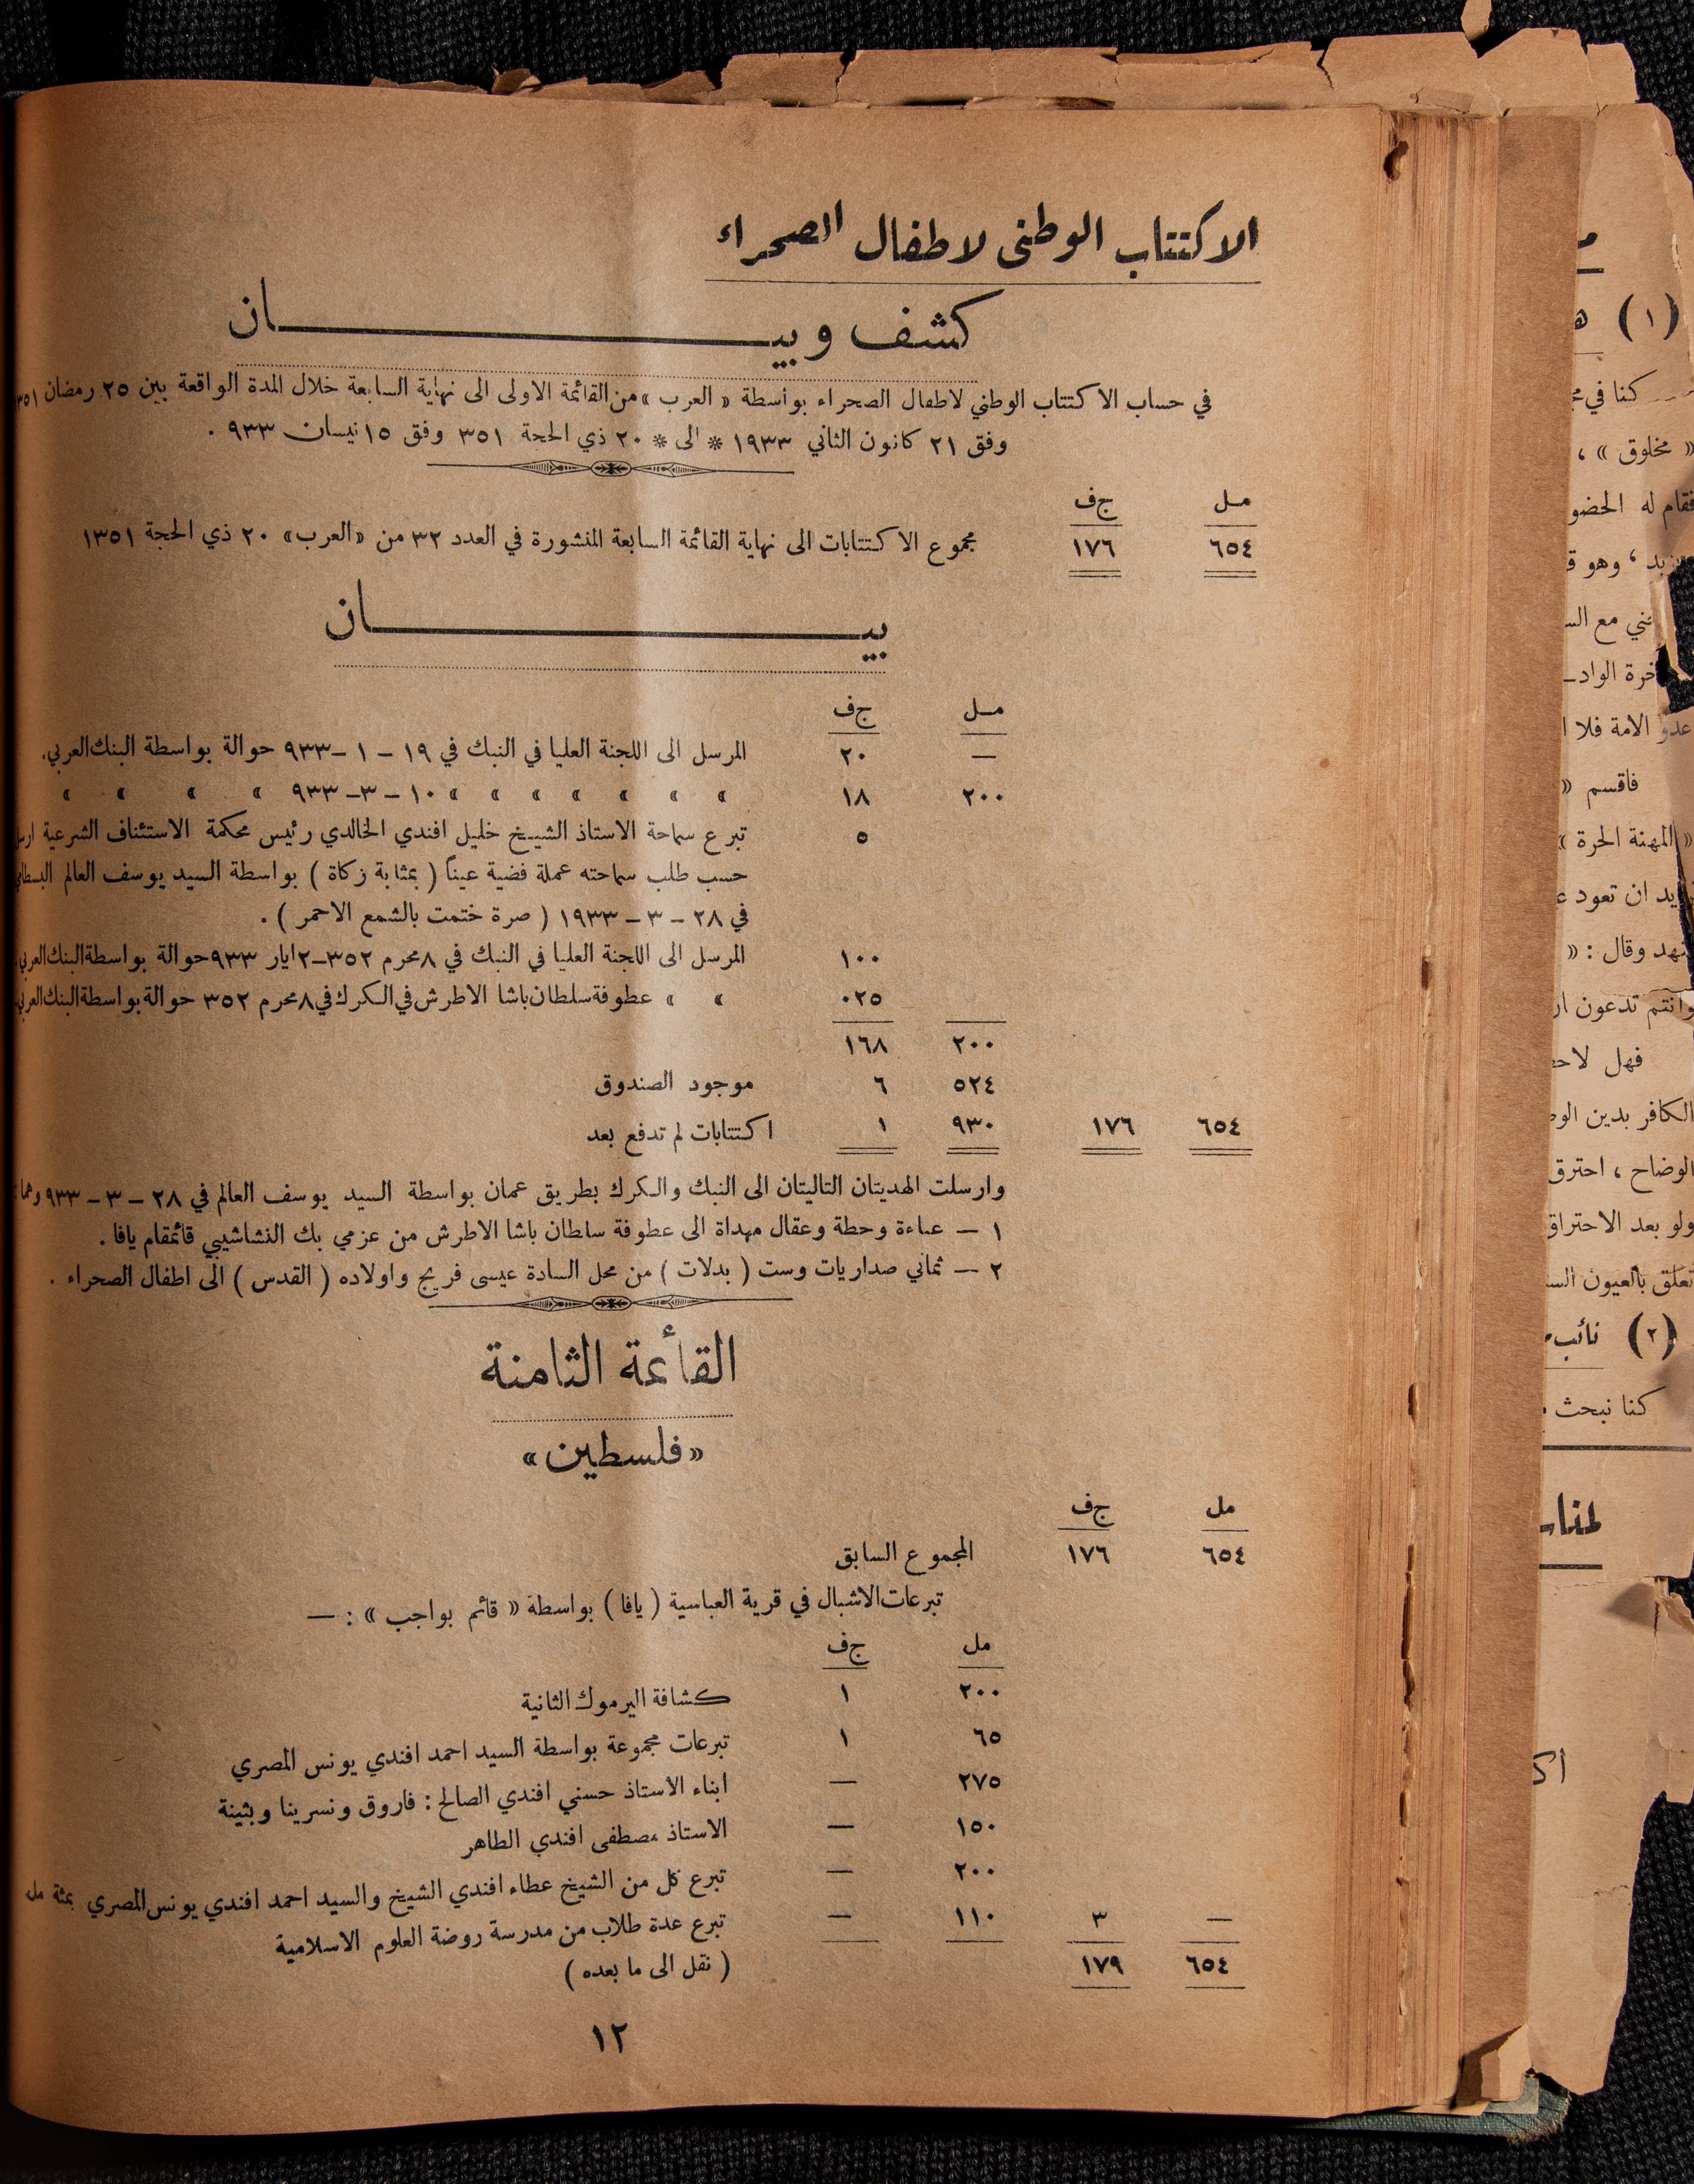 الاكتتاب الوطني لاطفال الصحراء
كشف وبيــــــان
في حساب الاكتتاب الوطني لاطفال الصحراء بواسطة « العرب » من القائمة الاولى الى نهاية السابعة خلال المدة الواقعة بين ٢٥ رمضان ٣٥١
وفق ٢١ كانون الثاني ١٩٣٣ * الى * ٢٠ ذي الحجة ٣٥١ وفق ١٥ نيسان ٩٣٣ .
مل ج ف
٦٥٤ ١٧٦ مجموع الاكتتابات الى نهاية القائمة السابعة المنشورة في العدد ٣٢ من «العرب» ٢٠ ذي الحجة ١٣٥١
بيــــــان
مل ج ف
— ٢٠ المرسل الى اللجنة العليا في النبك في ١٩ – ١ – ٩٣٣ حوالة بواسطة البنك العربي.
٢٠٠ ١٨ » » » » » » » ١٠ – ٣ – ٩٣٣ » » » »
٥ تبرع سماحة الاستاذ الشيخ خليل افندي الخالدي رئيس محكمة الاستئناف الشرعية ارسل
حسب طلب سماحته عملة فضية عيناً ( بمثابة زكاة ) بواسطة السيد يوسف العالم
في ٢٨ – ٣ – ١٩٣٣ ( صرة ختمت بالشمع الاحمر ) .
١٠٠ المرسل الى اللجنة العليا في النبك في ٨ محرم ٣٥٢–٢ ايار ٩٣٣ حوالة بواسطة البنك العربي
٠٢٥ » » عطوفة سلطان باشا الاطرش في الكرك في ٨ محرم ٣٥٢ حوالة بواسطة البنك العربي
٢٠٠ ١٦٨
٥٢٤ ٦ موجود الصندوق
٦٥٤ ١٧٦ ٩٣٠ ١ اكتتابات لم تدفع بعد
وارسلت الهديتان التاليتان الى النبك والكرك بطريق عمان بواسطة السيد يوسف العالم في ٢٨ – ٣ – ٩٣٣ وهما :
١ – عباءة وحطة وعقال مهداة الى عطوفة سلطان باشا الاطرش من عزمي بك النشاشيبي قائمقام يافا .
٢ – ثماني صداريات وست ( بدلات ) من محل السادة عيسى فريج واولاده ( القدس ) الى اطفال الصحراء .
القائمة الثامنة
«فلسطين»
مل ج ف
٦٥٤ ١٧٦ المجموع السابق
تبرعات الاشبال في قرية العباسية ( يافا ) بواسطة « قائم بواجب » : —
مل ج ف
٢٠٠ ١ كشافة اليرموك الثانية
٦٥ ١ تبرعات مجموعة بواسطة السيد احمد افندي يونس المصري
٢٧٥ — ابناء الاستاذ حسني افندي الصالح : فاروق ونسرينا وبثينة
١٥٠ — الاستاذ مصطفى افندي الطاهر
٢٠٠ — تبرع كل من الشيخ عطاء افندي الشيخ والسيد احمد افندي يونس المصري بمئة مل
— ٣ ١١٠ — تبرع عدة طلاب من مدرسة روضة العلوم الاسلامية
٦٥٤ ١٧٩ ( نقل الى ما بعده )
١٢
(١)
كنا في
« مخلوق » ،
فقام له الحضو
، وهو
مع
الواد
عدو الامة فلا ا
فاقسم «
« المهنة الحرة »
ان تعود
وقال : «
وانتم تدعون
فهل
الكافر بدين
الوضاح ، احترق
ولو بعد الاحتراق
تعلق بالعيون
(٢) نائب
كنا نبحث